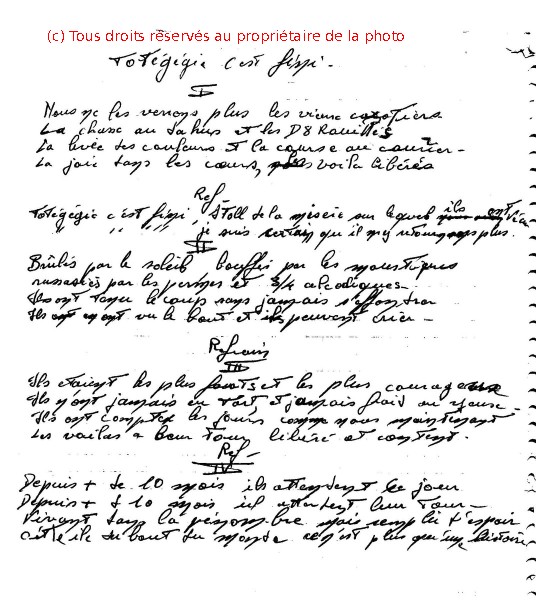 (c) Tous droits réservés au propriétaire de la photo
Totégégie c'est fini.
I
Nous ne les verrons plus les vieux cocotiers
La chasse au et les D8 Rouillés
La levée des couleurs et la course au courrier -
La joie dans les cœurs, voilà libérés
Ref
Totégégie c'est fini, Atoll de la misère sur lequel ils ont
" " " " je suis certain qu'il n'y plus.
II
Brûlés par le soleil bouffis par les moustiques
par les et 3/4 alcooliques -
Ils ont tenu le coup sans jamais s'effondrer
Ils ont vu le bout et ils peuvent crier -
Refrain
III
Ils étaient les plus forts et les plus courageux
Ils n'ont jamais eu tort, et jamais froid aux yeux -
Ils ont compté les jours comme nous maintenant
Les voilas à leur tour libéré et content.
Ref -
IV
Depuis + de 10 mois ils attendent ce jour
Depuis + d 10 mois ils attendent leur tour -
Vivant dans la pénombre mais remplis d'espoir
du bout du monde n'est plus qu'une histoire